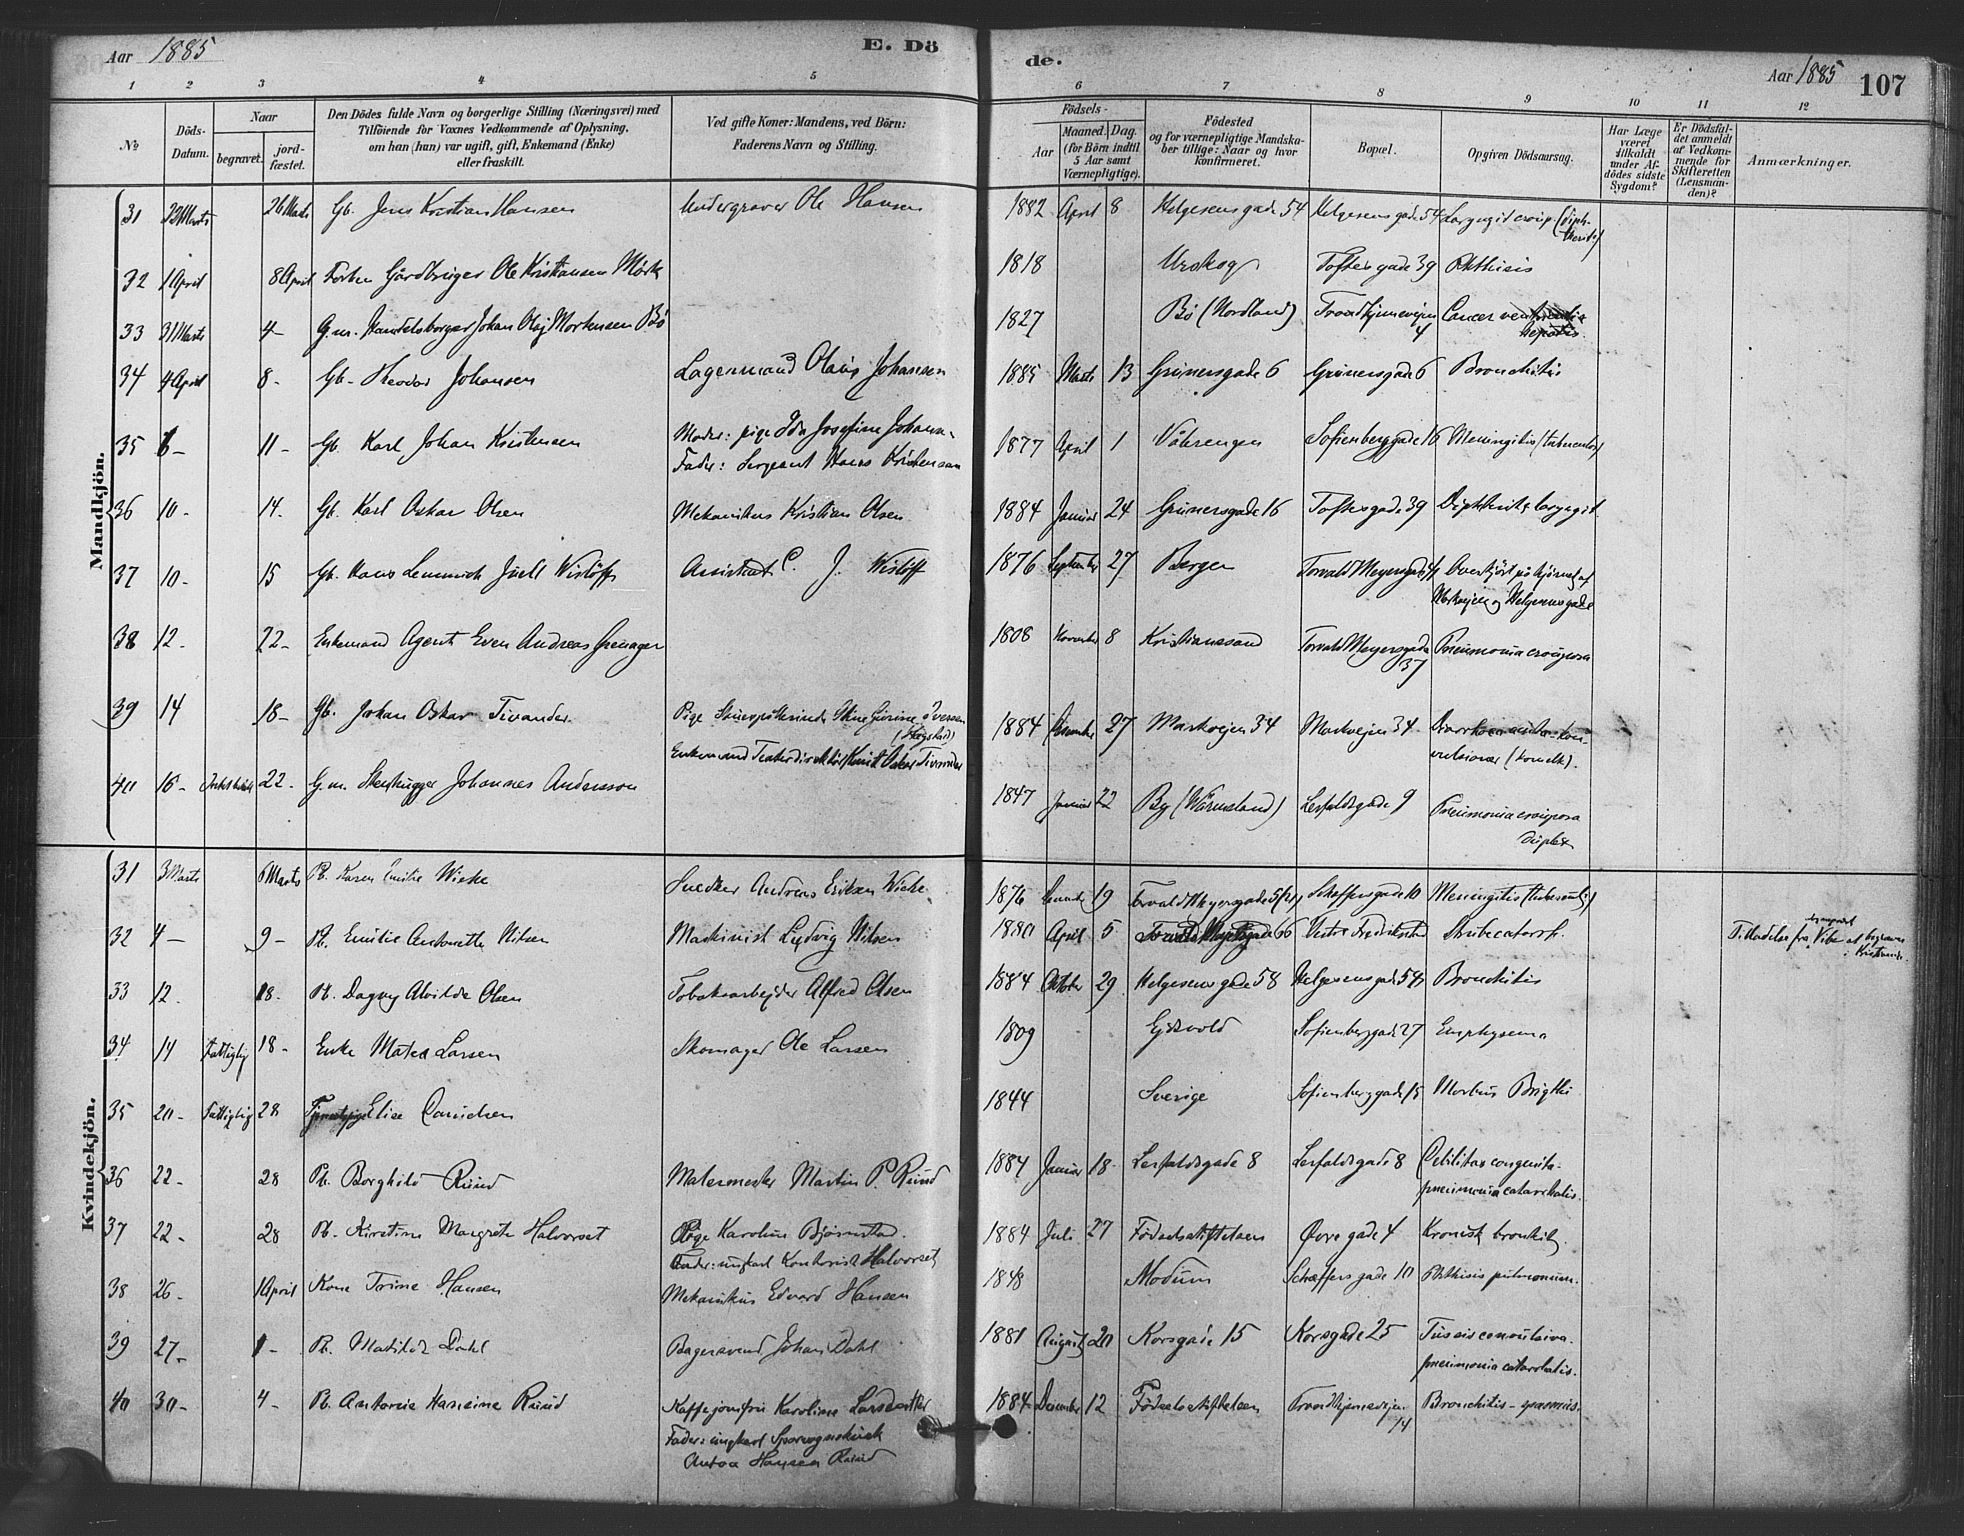 Aar 1885
E. Dö
de.
Aar 1885
107
1 2 3 4 5 6 7 8 9 10 11 12
№
Döds-Datum.
Naar
begravet.
jord-fæstet.
Den Dödes fulde Navn og borgerlige Stilling (Næringsvei) med
Tilföiende for Voxnes Vedkommende af Oplysning,
om han (hun) var ugift, gift, Enkemand (Enke)
eller fraskilt.
Ved gifte Koner: Mandens, ved Börn:
Faderens Navn og Stilling.
Födsels-
Aar
Maaned. Dag.
(for Börn indtil
5 Aar samt
Værnepligtige).
Födested
og for værnepligtige Mandska-
ber tillige: Naar og hvor
konfirmeret.
Bopæl.
Opgiven Dödsaarsag.
Har Læge
været
tilkaldt
under Af-
dödes sidste
Sygdom?
Er Dödsfal-
det anmeldt
af Vedkom-
mende for
Skifteretten
(Lensman-
den)?
Anmærkninger.
Mandkjön.
31 23 Marts 26 Marts Gb. Jens Kristian Hansen Undergraver Ole Hansen 1882 April 8 Helgesens gade 54 Helgesens gade 54 Laryngit croup. (diph-
therit)
32 1 April 8 April Forhen Gårdbruger Ole Kristiansen Mörk 1818 Urskog Toftes gade 39 Phthisis
33 31 Marts 4 - G.m. Handelsborger Johan Olaj Mortensen Bö 1827 Bö (Nordland) Trondhjemsvejen 4 Cancer hepatis
34 4 April 8 - Gb. Theodor Johansen Lagermand Olaus Johansen 1885 Marts 13 Grünersgade 6 Grünersgade 6 Bronchitis
35 6 - 11 - Gb. Karl Johan Kristensen Moder: pige Ida Josefine Johann.
Fader: Sergeant Hans Kristensen 1877 April 1 Vålerengen Sofienberggade 16 Meningitis
36 10 - 14. Gb. Karl Oskar Olsen Mekanikus Kristian Olsen 1884 Januar 24 Grünersgade 16 Toftesgade 39 Diphtherit. laryngit
37 10 - 15 Gb. Hans Lemmich Juell Wislöff Assistent C. J. Wislöff 1876 September 27 Bergen Torvald Meyersgade Overkjört på hjörnet af
Markvejen og Helgesensgade
38 12 - 22 - Enkemand Agent Even Andreas Grenager 1808 November 8 Kristianssand Torvald Meyersgade 37 Pneumonia crouposa
39 14 18 - Gb. Johan Oskar Tivander Pige Skuespillerinde Stine Iversen
Enkemand Teaterdirektör Knut Oskar Tivander 1884 27 Markvejen 34 Markvejen 34
40 16 - 22 - G.m. Stenhugger Johannes Andersson 1847 Januar 22 By (Wärmland) Lerfaldsgade 9 Pneumonia crouposa
duplex
Kvindekjön.
31 3 Marts 6 Marts Pb. Karen Emilie Wicke Snedker Andreas Eriksen Wicke 1876 19 Torvald Meyersgade Schæffersgade 10 Meningitis
32 4 - 9 - Pb. Emilie Antonette Nilsen Maskinist Ludvig Nilsen 1880 April 5 Torvald Meyersgade 66 Vestre Fredrikstad Strubecatarrh. Tilladelse fra Vibe at begraves
i
33 12. 18 - Pb. Dagny Alvilde Olsen Tobaksarbejder Alfred Olsen 1884 Oktober 29 Helgesens gade 58 Helgesens gade 54 Bronchitis
34 14 Fattiglig 18 - Enke Mathea Larsen Skomager Ole Larsen 1809 Ejdsvold Sofienberggade 27 Emphysema
35 20 - Fattiglig 28 Tjenestepige Elise Danielsen 1844 Sverige Sofienberggade 15 Morbus Brigthi
36 22 - 28 Pb. Borghild Ruud Malermester Martin P. Ruud 1884 Januar 18 Lerfaldsgade 8 Lerfaldsgade 8 Debilitas congenita.
pneumonia catarrhalis.
37 22 - 28 Pb. Kirstine Margrete Halvorset Pige Karoline Björnstad.
Fader: ungkarl Kontorist Halvorset 1884 Juli 27 Födselsstiftelsen Øvre gade 4 Kronisk bronkit
38 26 - 1 April Kone Trine Hansen Mekanikus Edvard Hansen 1848 Modum Schæffers gade 10 Phthisis pulmonum.
39 27 - 1 - Pb. Matilde Dahl Bagersvend Johan Dahl 1881 August 20 Korsgade 15 Korsgade 25 Tussis convulsiva.
pneumonia catarrhalis.
40 30 - 4 - Pb. Antonie Hansine Ruud Kaffejomfru Karoline Larsdatter
Fader: ungkarl Sporvognskusk
Anton Hansen Ruud 1884 December 12 Födselsstiftelsen Trondhjemsvejen 14 Bronchitis - spasmus.